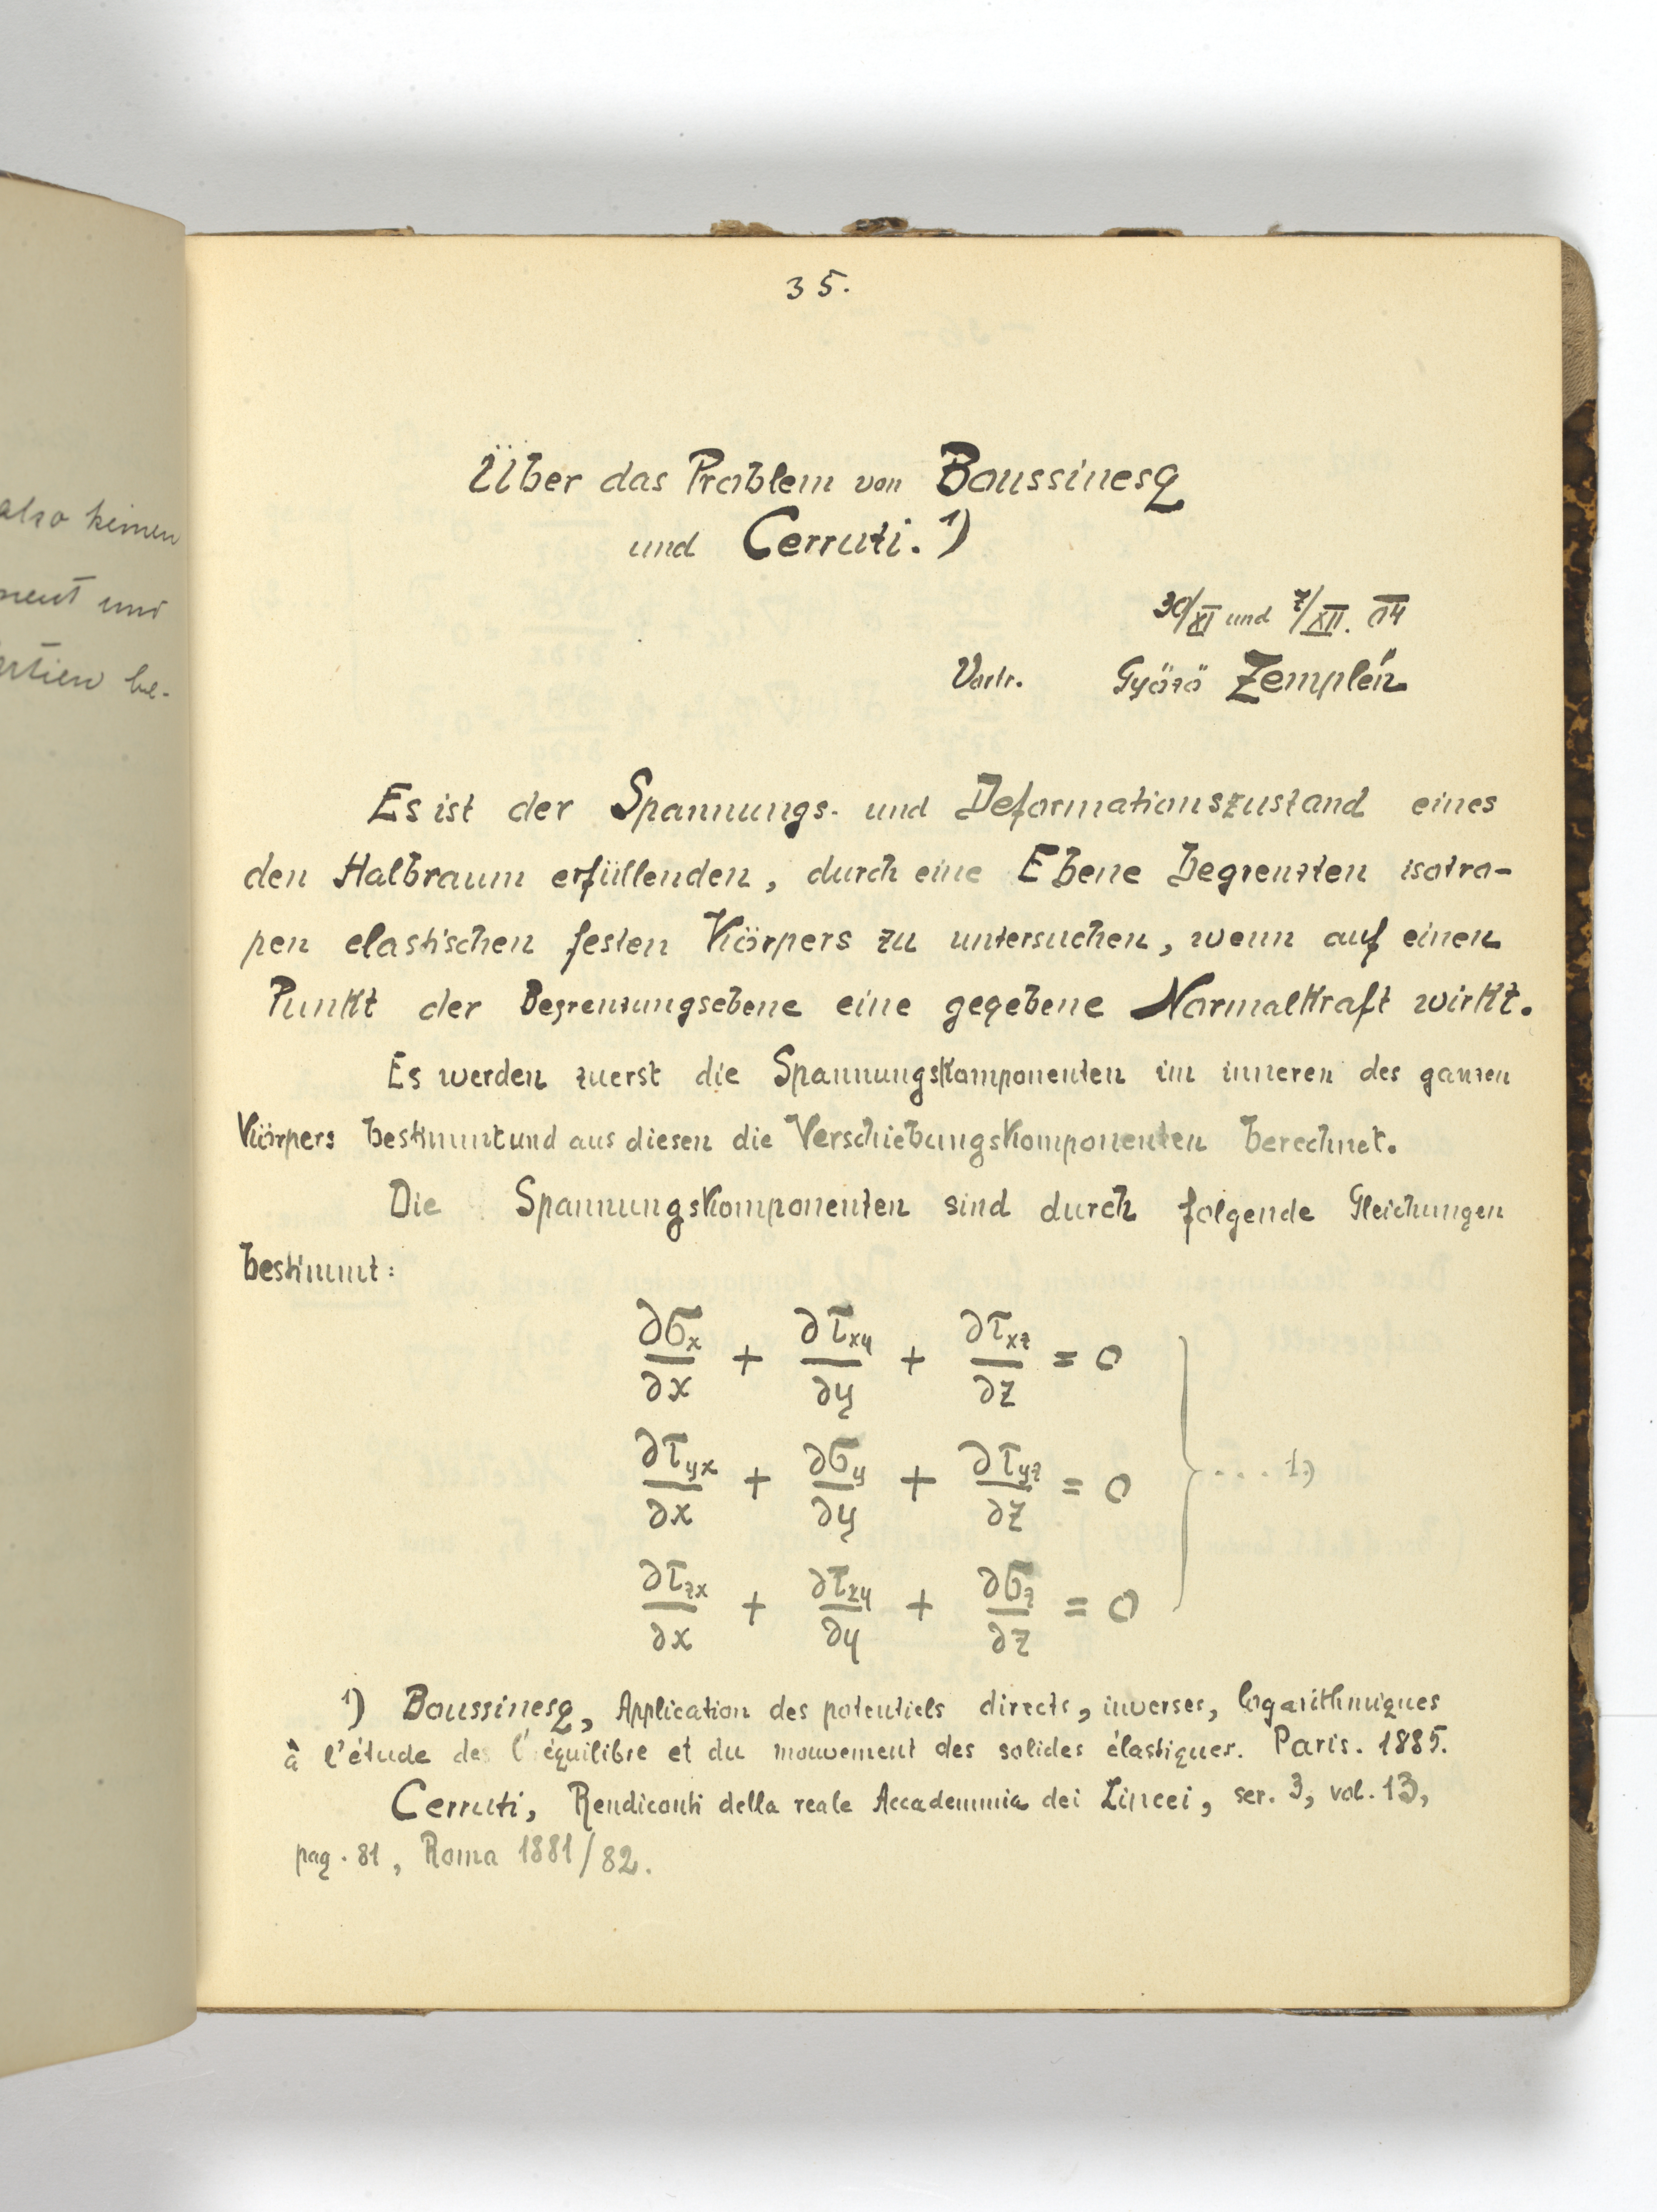 also keinen
und
be-
35.
Über das Problem von Boussinesq
und Cerruti. 1)
30/XI und 7/XII. 04
Vortr. Győző Zemplén
Es ist der Spannungs- und Deformationszustand eines
den Halbraum erfüllenden, durch eine Ebene begrenzten isotro-
pen elastischen festen Körpers zu untersuchen, wenn auf einen
Punkt der Begrenzungsebene eine gegebene Normalkraft wirkt.
Es werden zuerst die Spannungskomponenten im inneren des ganzen
Körpers bestimmt und aus diesen die Verschiebungskomponenten berechnet.
Die Spannungskomponenten sind durch folgende Gleichungen
bestimmt:
∂σx/∂x + ∂τxy/∂y + ∂τxz/∂z = 0
∂τyx/∂x + ∂σy/∂y + ∂τyz/∂z = 0 } ... 1.)
∂τzx/∂x + ∂τzy/∂y + ∂σz/∂z = 0
1) Boussinesq, Application des potentiels directs, inverses, logarithmiques
à l'étude de l'équilibre et du mouvement des solides élastiques. Paris. 1885.
Cerruti, Rendiconti della reale Accademmia dei Lincei, ser. 3, vol. 13,
pag. 81, Roma 1881/82.